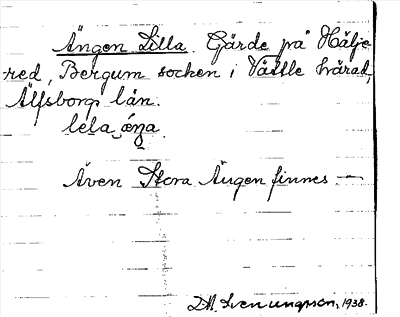 Ängen Lilla. Gärde på Hälje-
red, Bergum socken i Vättle härad,
Älfsborgs län.
lela äŋa.
Även Stora Ängen finnes. —
Svenungsson, 1938.